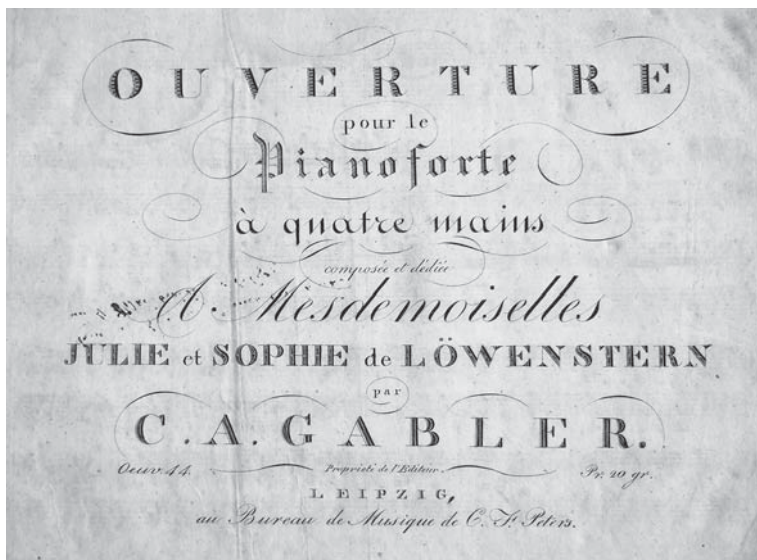 OUVERTURE
pour le
Pianoforte
à quatre mains
composée et dédiée
A Mesdemoiselles
JULIE et SOPHIE de LÖWENSTERN
par
C. A. GABLER.
Oeuv. 44. Proprieté de l'Editeur. Pr. 20 gr.
LEIPZIG,
au Bureau de Musique de C. F. Peters.